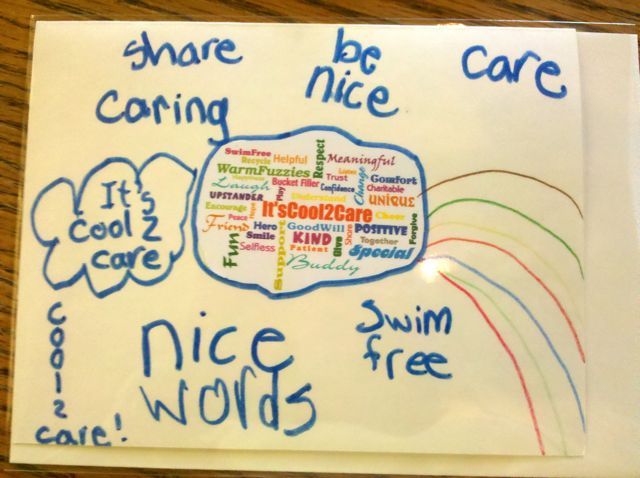 share
be
nice
care
caring
SwimFree
Recycle
Helpful
Respect
Meaningful
WarmFuzzies
Happiness
Laugh
Bucket Filler
Play
Trust
Confidence
Change
Comfort
Charitable
UPSTANDER
Understand
UNIQUE
Encourage
It'sCool2Care
Cheer
Peace
Friend
Hero
Smile
Selfless
Fun
Support
GoodWill
KIND
Patient
Give
Share
POSITIVE
Together
Special
Forgive
Buddy
It's
Cool 2
care
Cool2
care!
nice
words
swim
free